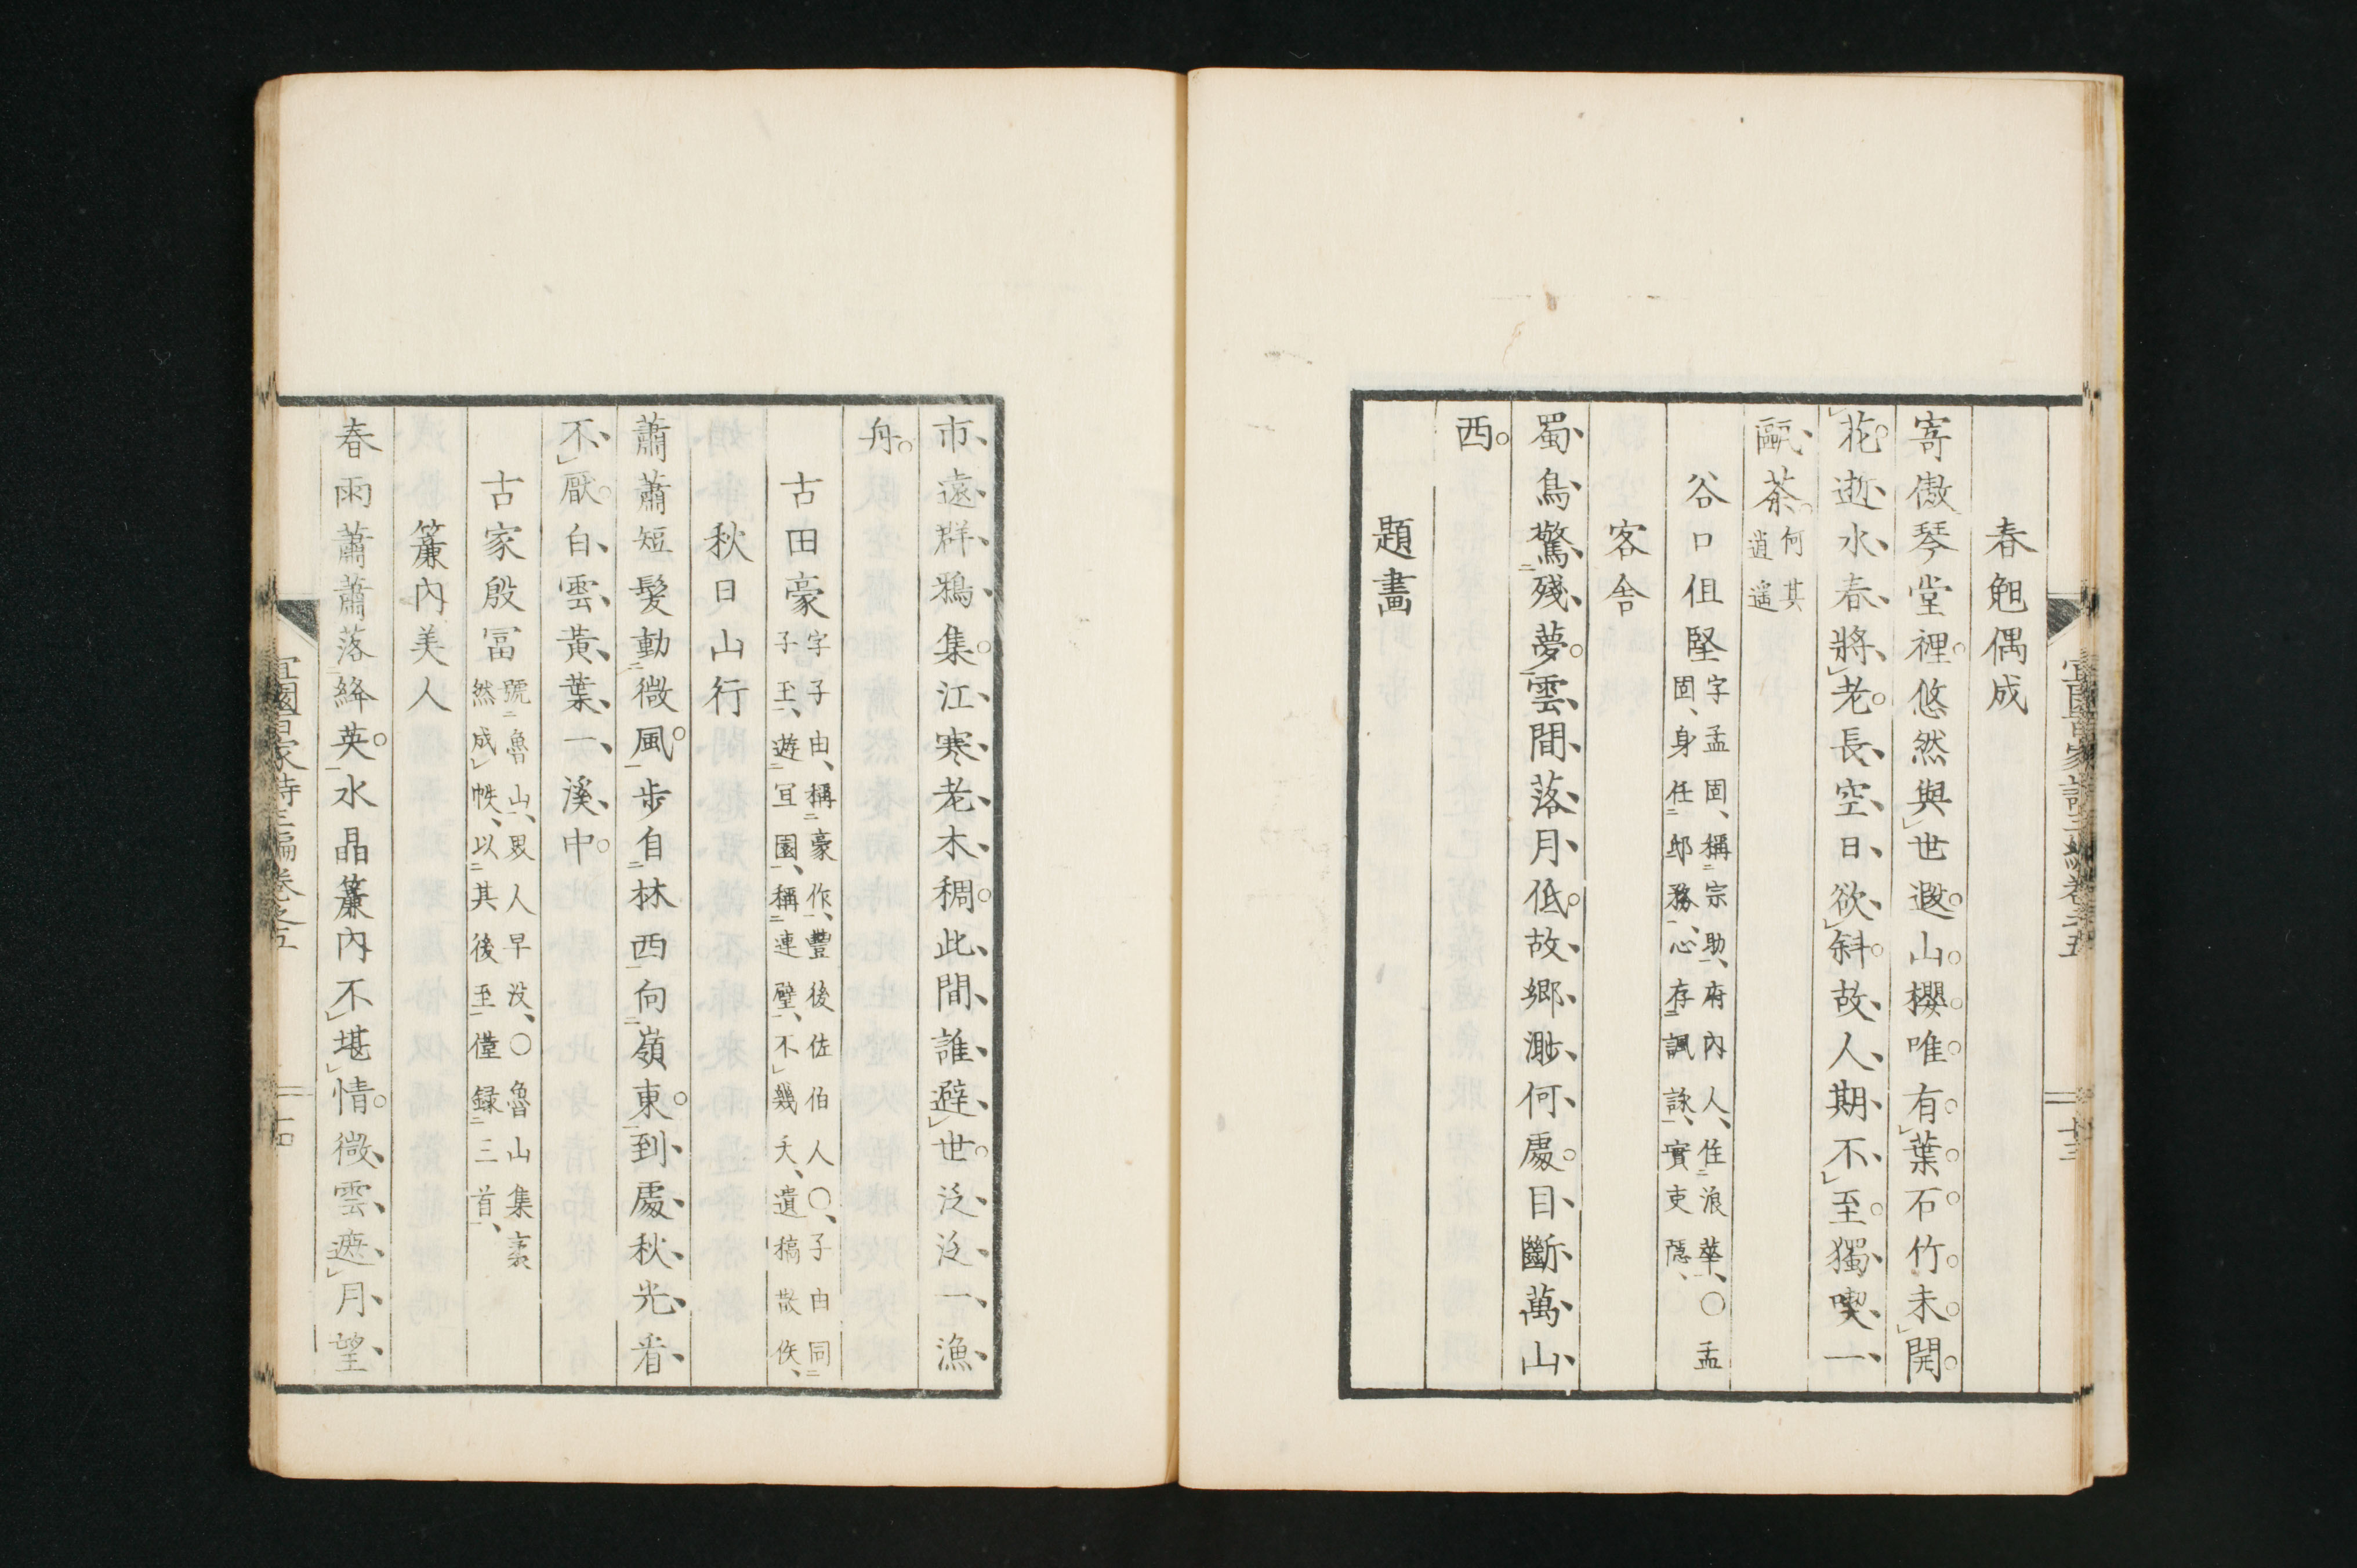 春䞕偶成
寄傲琴堂裡悠然與世遐山櫻唯有葉石竹未開
花逝水春將老長空日欲斜故人期不至獨喫一
甌茶何其逍遥
谷口伹堅字孟固、稱宗助、府內人、住浪華、〇孟固、身任邸務、心存諷詠、實吏隱、
客舍
蜀鳥驚殘夢雲間落月低故鄉渺何處目斷萬山
西
題畵
市遠群鴉集江寒老木稠此間誰避世泛泛一漁
舟
古田豪字子由、稱豪作、豐後佐伯人〇、子由同子玉、遊宜園、稱連璧、不幾夭、遺稿散佚、
秋日山行
蕭蕭短髮動微風步自林西向嶺東到處秋光看
不厭白雲黃葉一溪中
古家殷冨號魯山、畏人早沒、〇魯山集褎然成帙、以其後至僅録三首、
簾內美人
春雨蕭蕭落絳英水晶簾內不堪情微雲遮月望
宜園百家詩二編卷之五
十三
十四